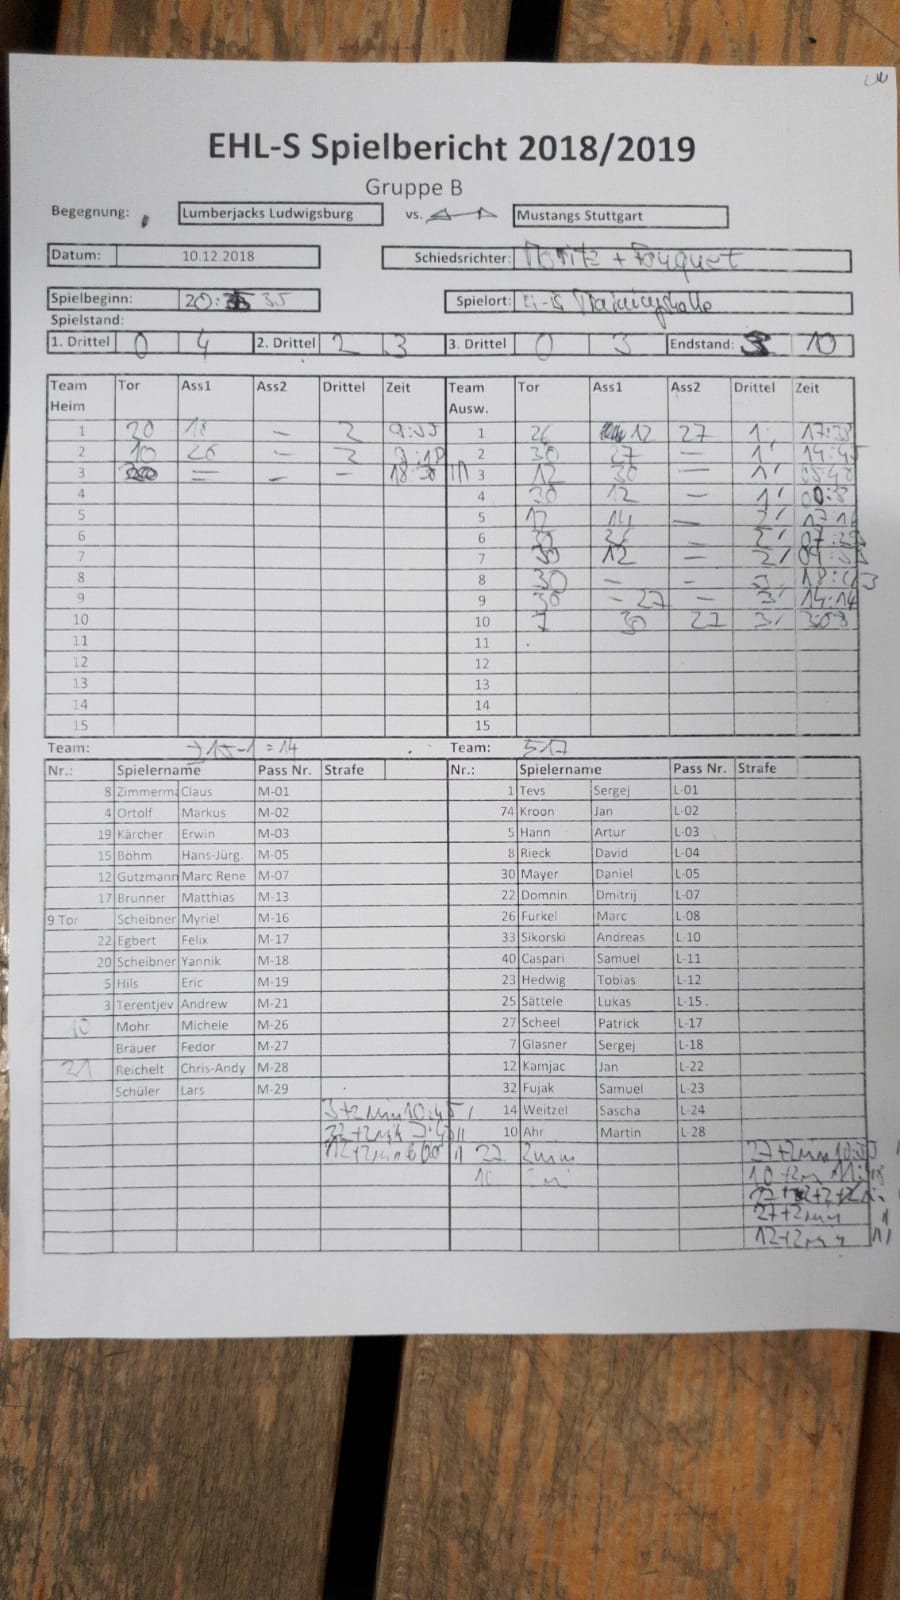 EHL-S Spielbericht 2018/2019
Gruppe B
Begegnung: Lumberjacks Ludwigsburg vs. Mustangs Stuttgart
Datum: 10.12.2018 Schiedsrichter: Moritz + Fouquet
Spielbeginn: 20: 35 Spielort: Trainingshalle
Spielstand:
1. Drittel 0 4 2. Drittel 2 3 3. Drittel 0 3 Endstand: 10
Team Heim Tor Ass1 Ass2 Drittel Zeit Team Ausw. Tor Ass1 Ass2 Drittel Zeit
1 20 18 - 2 1 26 12 27 1
2 10 20 - 2 2 30 27 - 1
3 - 18:30 3 12 30 - 1
4 4 30 12 - 1
5 5 14 -
6 6 -
7 7 12 - 2
8 8 30 - -
9 9 30 - 27 - 3 14:14
10 10 7 30 27 3
11 11
12 12
13 13
14 14
15 15
Team: 15-1 = 14 Team:
Nr.: Spielername Pass Nr. Strafe Nr.: Spielername Pass Nr. Strafe
8 Zimmerma Claus M-01 1 Tevs Sergej L-01
4 Ortolf Markus M-02 74 Kroon Jan L-02
19 Kärcher Erwin M-03 5 Hann Artur L-03
15 Böhm Hans-Jürg. M-05 8 Rieck David L-04
12 Gutzmann Marc Rene M-07 30 Mayer Daniel L-05
17 Brunner Matthias M-13 22 Domnin Dmitrij L-07
9 Tor Scheibner Myriel M-16 26 Furkel Marc L-08
22 Egbert Felix M-17 33 Sikorski Andreas L-10
20 Scheibner Yannik M-18 40 Caspari Samuel L-11
5 Hils Eric M-19 23 Hedwig Tobias L-12
3 Terentjev Andrew M-21 25 Sättele Lukas L-15
10 Mohr Michele M-26 27 Scheel Patrick L-17
Bräuer Fedor M-27 7 Glasner Sergej L-18
21 Reichelt Chris-Andy M-28 12 Kamjac Jan L-22
Schüler Lars M-29 32 Fujak Samuel L-23
3+2min 10:45 14 Weitzel Sascha L-24
22+2min 10 Ahr Martin L-28
12+2min 22 2min 27+2min
10
27+2min
12+2min